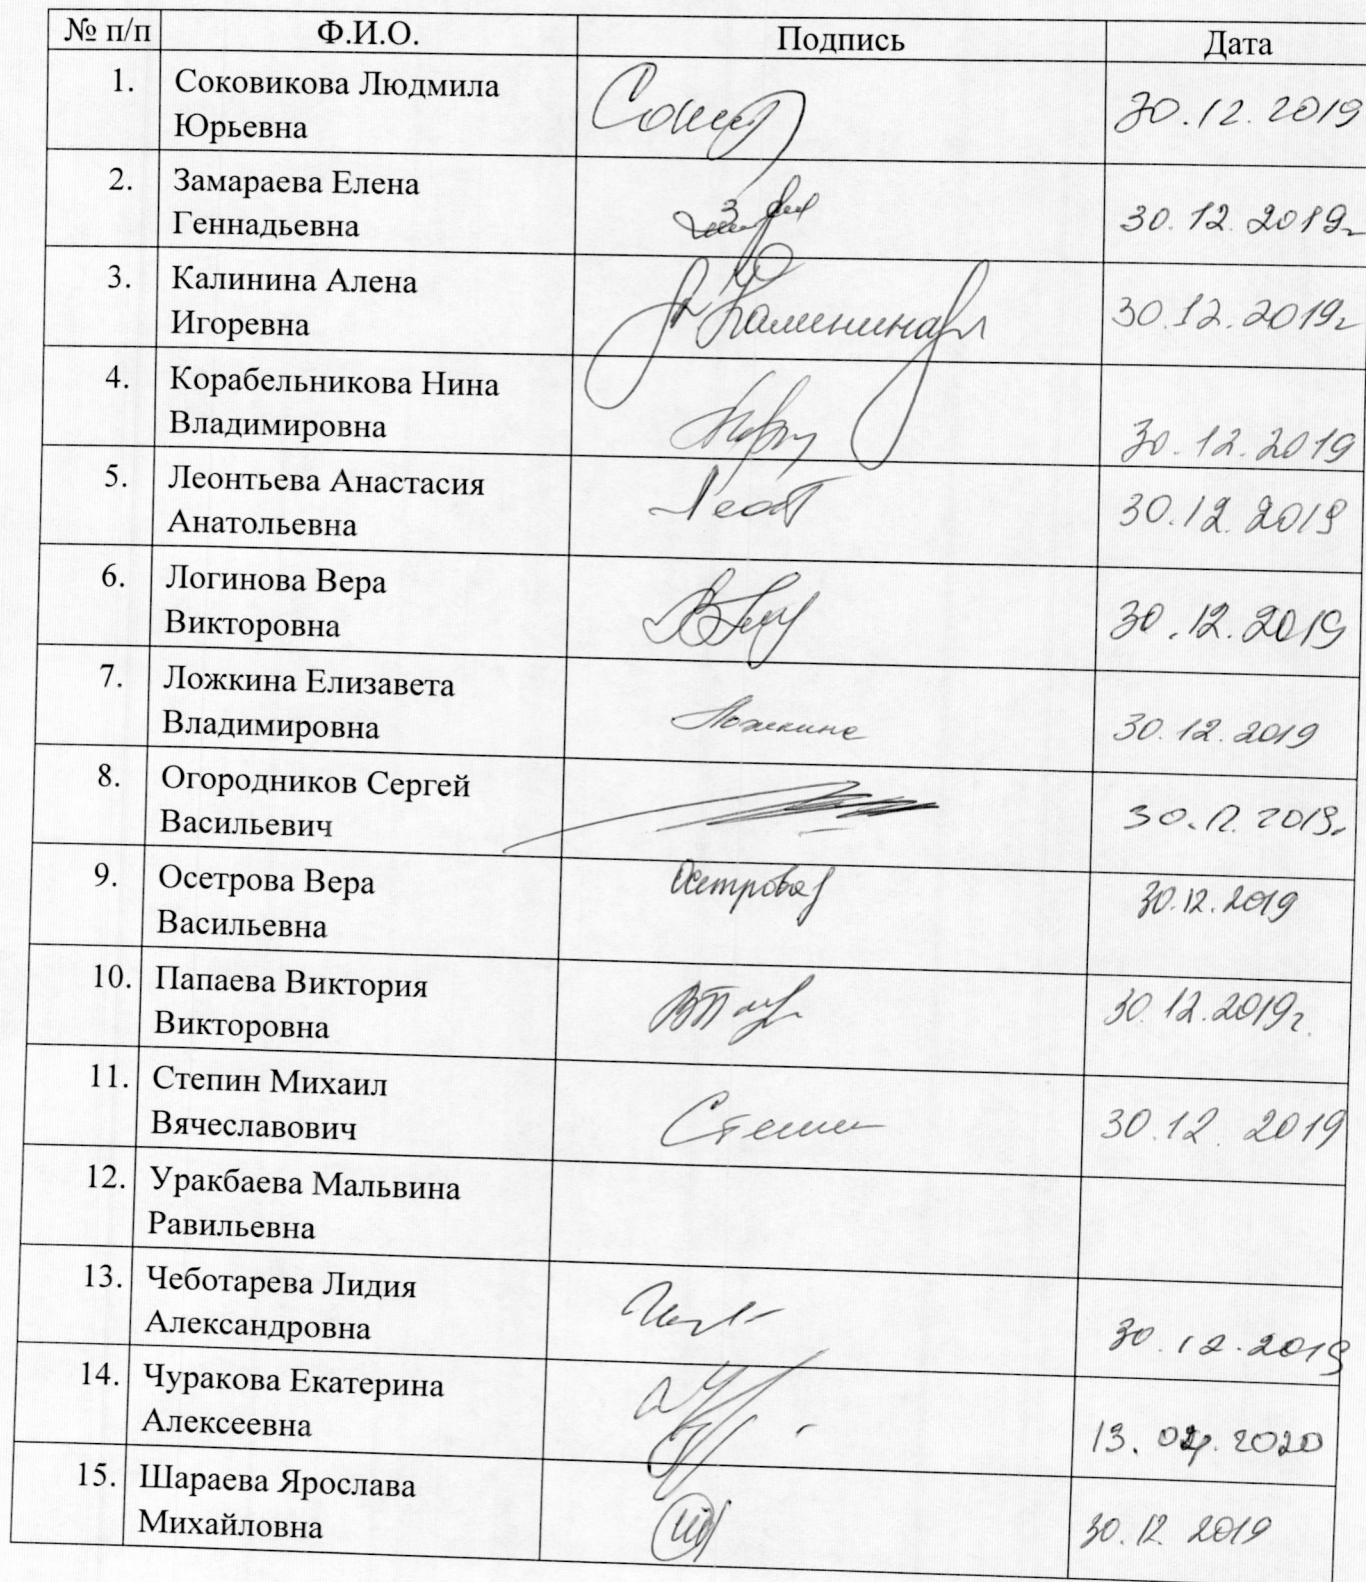 № п/п Ф.И.О. Подпись Дата
1. Соковикова Людмила
Юрьевна 30.12.2019
2. Замараева Елена
Геннадьевна 30.12.2019г
3. Калинина Алена
Игоревна Калинина 30.12.2019г
4. Корабельникова Нина
Владимировна 30.12.2019
5. Леонтьева Анастасия
Анатольевна 30.12.2019
6. Логинова Вера
Викторовна 30.12.2019
7. Ложкина Елизавета
Владимировна Ложкина 30.12.2019
8. Огородников Сергей
Васильевич 30.12.2019г
9. Осетрова Вера
Васильевна Осетрова 30.12.2019
10. Папаева Виктория
Викторовна 30.12.2019г.
11. Степин Михаил
Вячеславович 30.12.2019
12. Уракбаева Мальвина
Равильевна
13. Чеботарева Лидия
Александровна 30.12.2019
14. Чуракова Екатерина
Алексеевна
15. Шараева Ярослава
Михайловна 30.12.2019